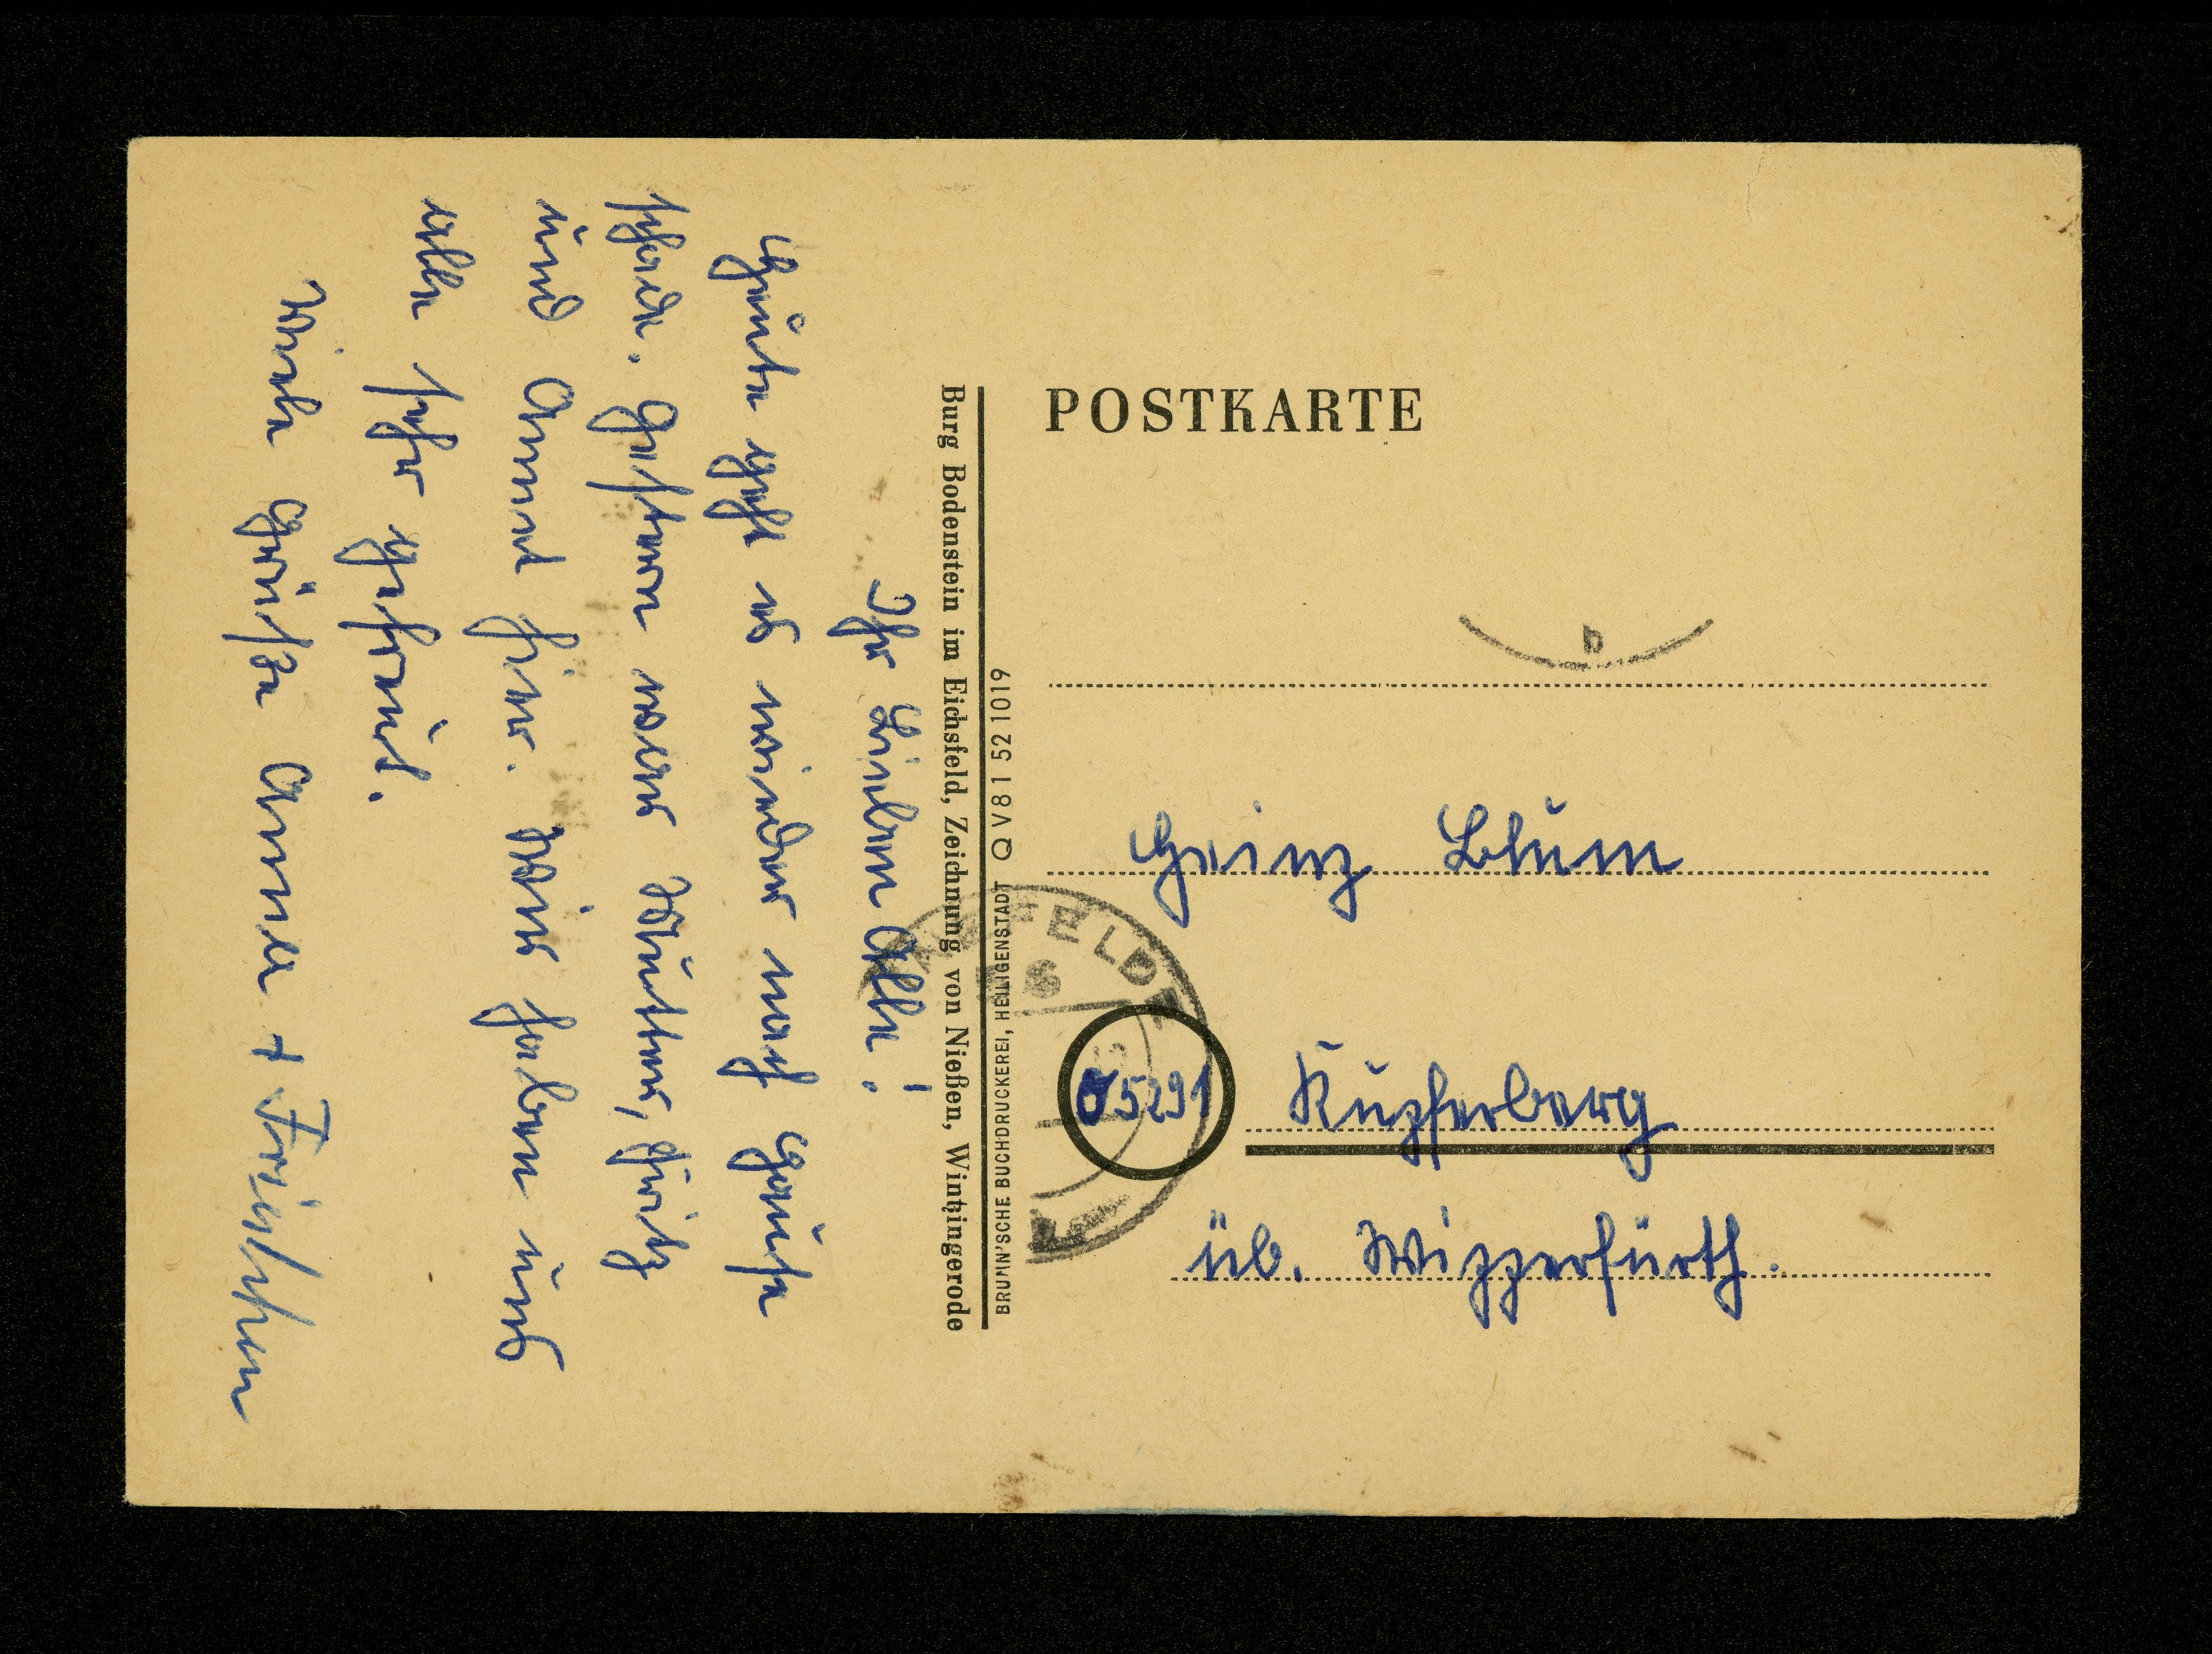 POSTKARTE
Heinz Blum
5291 Kupferberg
üb. Wipperfürth.
Burg Bodenstein im Eichsfeld, Zeichnung von Nießen, Wintzingerode
BRUNN'SCHE BUCHDRUCKEREI, HEILIGENSTADT Q V 8 1 52 1019
b
Ihr Lieben Alle!
Heute geht es wieder nach Hause
. Gestern war Mutter, Fritz
und Annel hier. Wir haben uns
alle sehr gefreut.
Viele Grüße Anna +